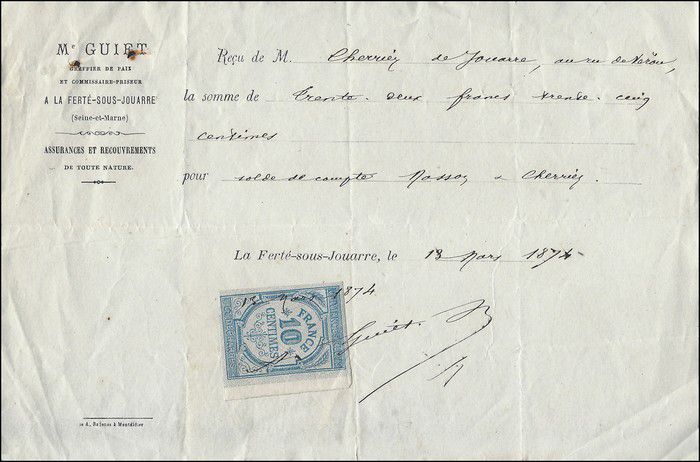 Me GUIET
GREFFIER DE PAIX
ET COMMISSAIRE-PRISEUR
A LA FERTÉ-SOUS-JOUARRE
(Seine-et-Marne)
ASSURANCES ET RECOUVREMENTS
DE TOUTE NATURE.
Reçu de M. Cherriéz de Jouarre, au ru de
la somme de Trente-deux francs trente-cinq
centimes
pour solde de compte Cherriéz.
La Ferté-sous-Jouarre, le 13 Mars 1874
13 Mars 1874
FRANCE
10
CENTIMES
Guiet
à Montdidier